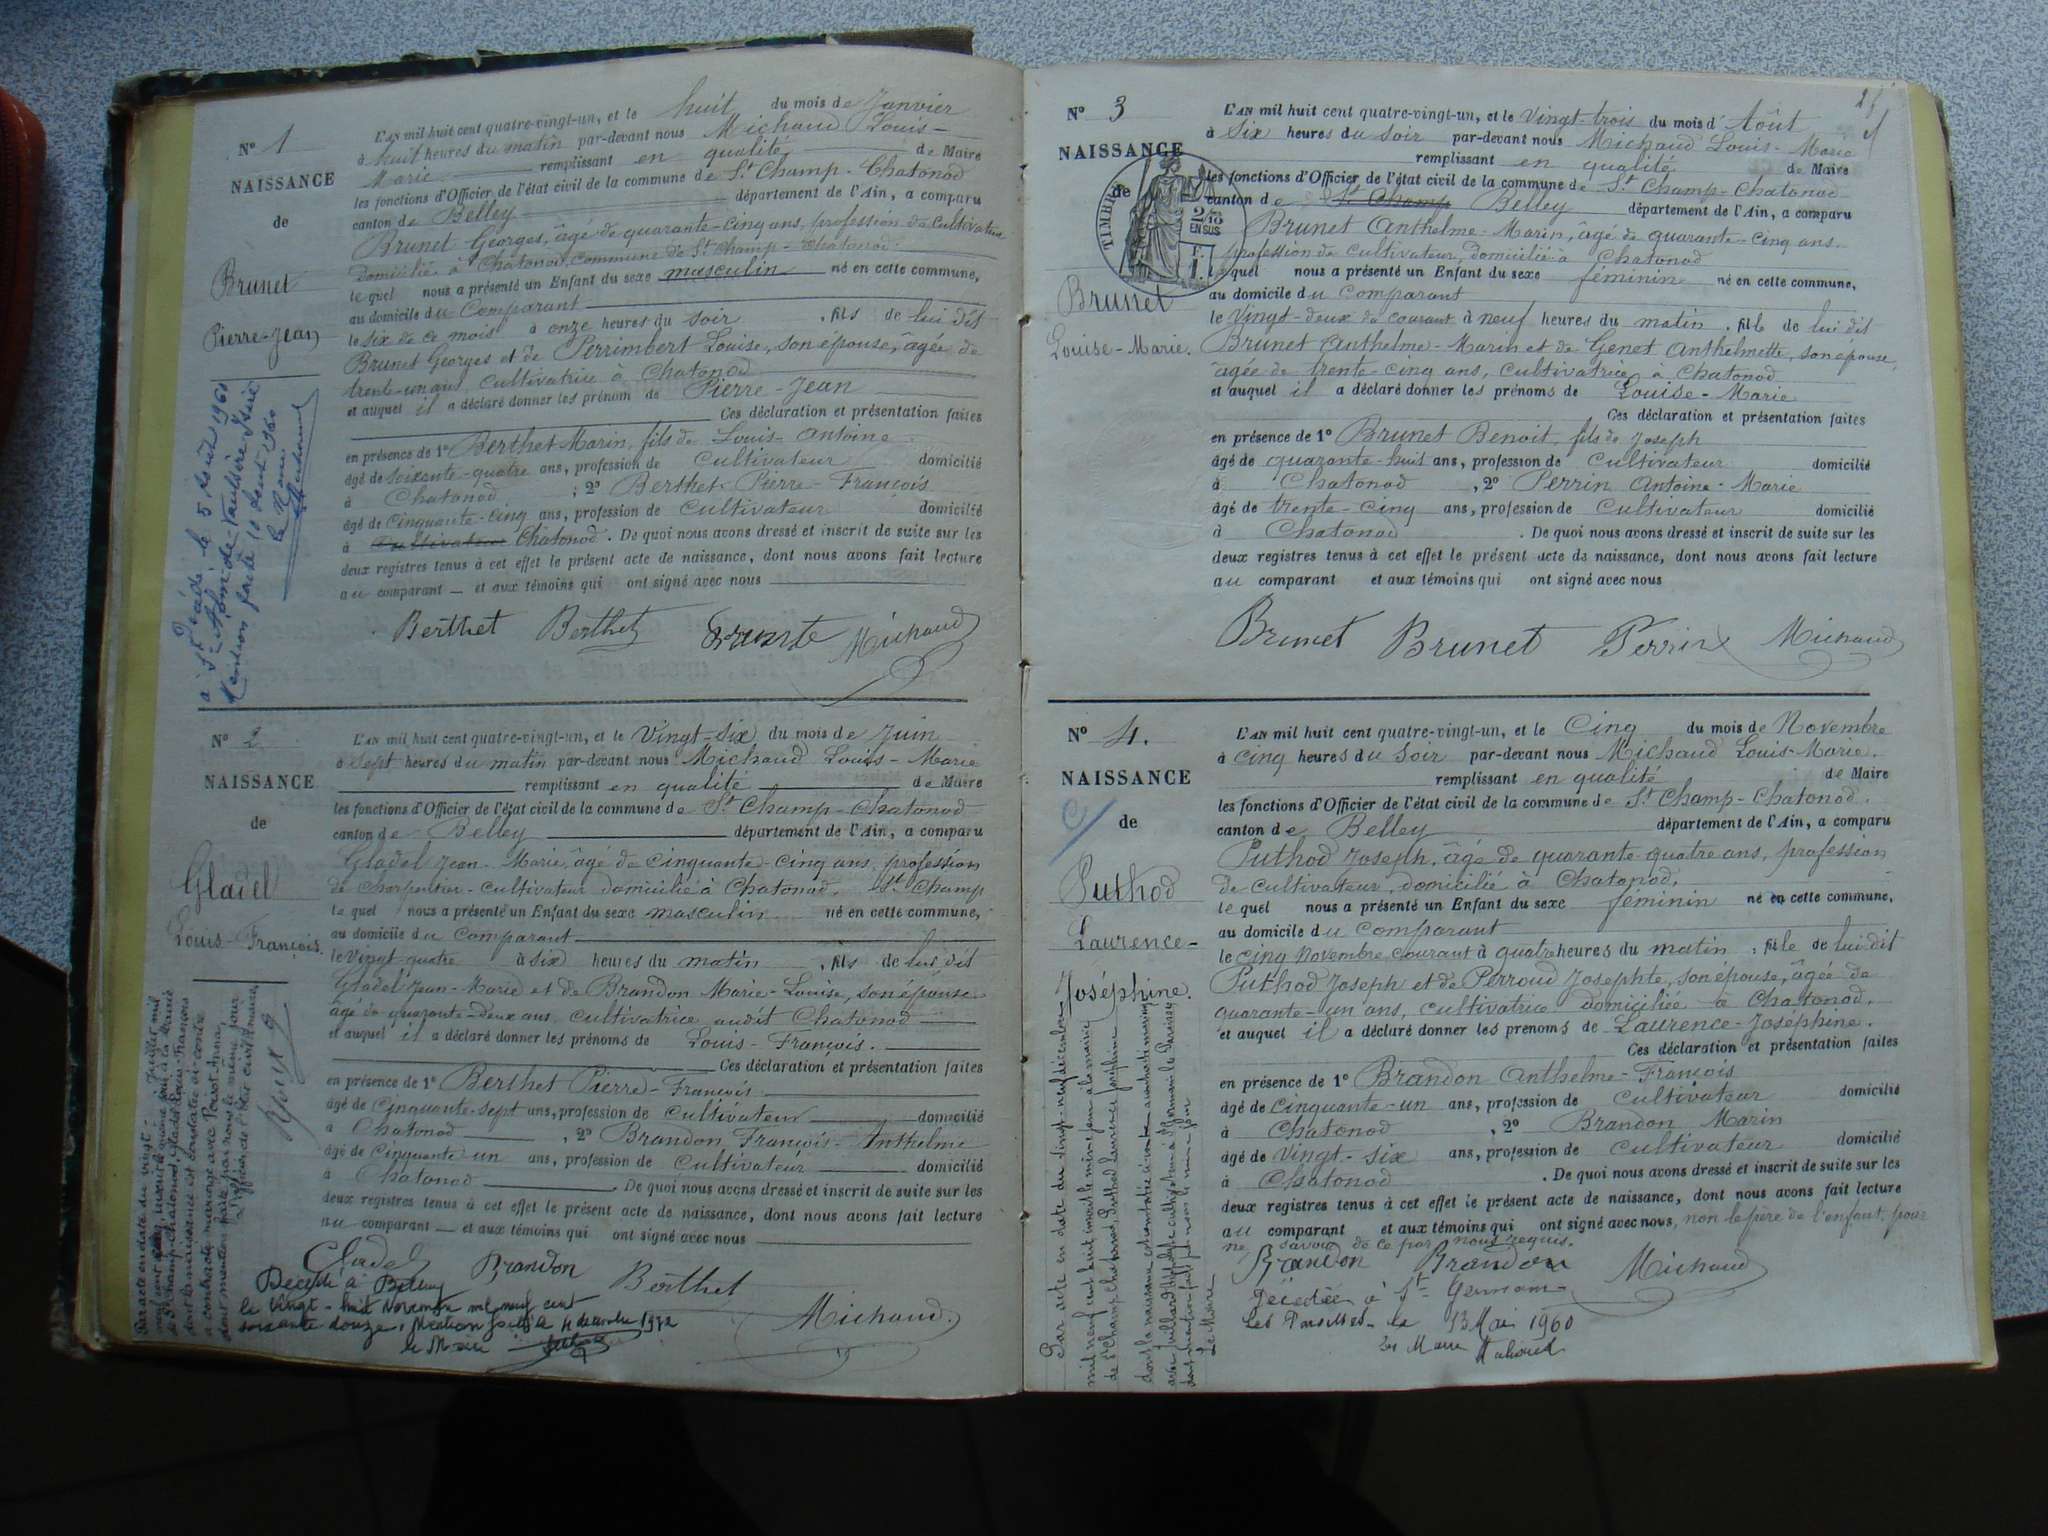 N° 1
NAISSANCE
de
Brunet
Pierre-Jean
L'AN mil huit cent quatre-vingt-un, et le huit du mois de Janvier
à huit heures du matin par-devant nous Michaud Louis-
Marie remplissant en qualité de Maire
les fonctions d'Officier de l'état civil de la commune de St Champ-Chatonod
canton de Belley département de l'Ain, a comparu
Brunet Georges, âgé de quarante-cinq ans, profession de cultivateur
domicilié à Chatonod, commune de St Champ-Chatonod.
lequel nous a présenté un Enfant du sexe masculin né en cette commune,
au domicile du Comparant
le six de ce mois à onze heures du soir, fils de lui dit
Brunet Georges et de Perrimbert Louise, son épouse, âgée de
trente-un ans, cultivatrice à Chatonod
et auquel il a déclaré donner les prénom de Pierre-Jean
Ces déclaration et présentation faites
en présence de 1° Berthet Marin, fils de Louis-Antoine
âgé de soixante-quatre ans, profession de cultivateur domicilié
à Chatonod ; 2° Berthet Pierre-François
âgé de cinquante-cinq ans, profession de cultivateur domicilié
à Chatonod. De quoi nous avons dressé et inscrit de suite sur les
deux registres tenus à cet effet le présent acte de naissance, dont nous avons fait lecture
au comparant et aux témoins qui ont signé avec nous
Berthet Berthet Michaud
le 5 août 1960
Mention faite 10 août 1960
le Maire
N° 2
NAISSANCE
de
Gladel
Louis-François.
L'AN mil huit cent quatre-vingt-un, et le Vingt-six du mois de Juin
à sept heures du matin par-devant nous Michaud Louis-Marie
remplissant en qualité de Maire
les fonctions d'Officier de l'état civil de la commune de St Champ-Chatonod
canton de Belley département de l'Ain, a comparu
Gladel Jean-Marie, âgé de cinquante-cinq ans, profession
de Charpentier-cultivateur domicilié à Chatonod, St Champ
lequel nous a présenté un Enfant du sexe masculin né en cette commune,
au domicile du Comparant
le vingt quatre à six heures du matin, fils de lui dit
Gladel Jean-Marie et de Brandon Marie-Louise, son épouse
âgé de quarante-deux ans, cultivatrice audit Chatonod
et auquel il a déclaré donner les prénoms de Louis-François.
Ces déclaration et présentation faites
en présence de 1° Berthet Pierre-François
âgé de cinquante-sept ans, profession de cultivateur domicilié
à Chatonod, 2° Brandon François-Anthelme
âgé de cinquante un ans, profession de cultivateur domicilié
à Chatonod. De quoi nous avons dressé et inscrit de suite sur les
deux registres tenus à cet effet le présent acte de naissance, dont nous avons fait lecture
au comparant et aux témoins qui ont signé avec nous
Gladel Brandon Berthet
Michaud
Décédé à Belley
le vingt-huit Novembre mil neuf cent
soixante douze, Mention faite le 4 décembre 1972
le Maire
N° 3
NAISSANCE
de
Brunet
Louise-Marie.
TIMBRE
2/10
EN SUS
L'AN mil huit cent quatre-vingt-un, et le vingt-trois du mois d'Août
à six heures du soir par-devant nous Michaud Louis-Marie
remplissant en qualité de Maire
les fonctions d'Officier de l'état civil de la commune de St Champ-Chatonod
canton de St Champ Belley département de l'Ain, a comparu
Brunet Anthelme-Marin, âgé de quarante-cinq ans
profession de cultivateur, domicilié à Chatonod
lequel nous a présenté un Enfant du sexe féminin né en cette commune,
au domicile du Comparant
le vingt-deux du courant à neuf heures du matin, fille de lui dit
Brunet Anthelme-Marin et de Genet Anthelmette, son épouse,
âgée de trente-cinq ans, cultivatrice à Chatonod
et auquel il a déclaré donner les prénoms de Louise-Marie
Ces déclaration et présentation faites
en présence de 1° Brunet Benoit, fils de Joseph
âgé de quarante-huit ans, profession de cultivateur domicilié
à Chatonod, 2° Perrin Antoine-Marie
âgé de trente-cinq ans, profession de cultivateur domicilié
à Chatonod. De quoi nous avons dressé et inscrit de suite sur les
deux registres tenus à cet effet le présent acte de naissance, dont nous avons fait lecture
au comparant et aux témoins qui ont signé avec nous
Brunet Brunet Perrin Michaud
N° 4.
NAISSANCE
de
Puthod
Laurence-
Joséphine.
L'AN mil huit cent quatre-vingt-un, et le Cinq du mois de Novembre
à cinq heures du soir par-devant nous Michaud Louis-Marie.
remplissant en qualité de Maire
les fonctions d'Officier de l'état civil de la commune de St Champ-Chatonod.
canton de Belley département de l'Ain, a comparu
Puthod Joseph, âgé de quarante-quatre ans, profession
de cultivateur, domicilié à Chatonod.
lequel nous a présenté un Enfant du sexe féminin né en cette commune,
au domicile du Comparant
le cinq Novembre courant à quatre heures du matin, fille de lui dit
Puthod Joseph et de Perroud Josephte, son épouse, âgée de
quarante-un ans, cultivatrice domiciliée à Chatonod.
et auquel il a déclaré donner les prénoms de Laurence-Joséphine.
Ces déclaration et présentation faites
en présence de 1° Brandon Anthelme-François
âgé de cinquante-un ans, profession de cultivateur domicilié
à Chatonod, 2° Brandon Marin
âgé de vingt-six ans, profession de cultivateur domicilié
à Chatonod. De quoi nous avons dressé et inscrit de suite sur les
deux registres tenus à cet effet le présent acte de naissance, dont nous avons fait lecture
au comparant et aux témoins qui ont signé avec nous, non le père de l'enfant, pour
ne savoir de ce par nous requis.
Brandon Brandon Michaud
Décédée à St Germain
les Paroisses le 13 Mai 1960
Le Maire